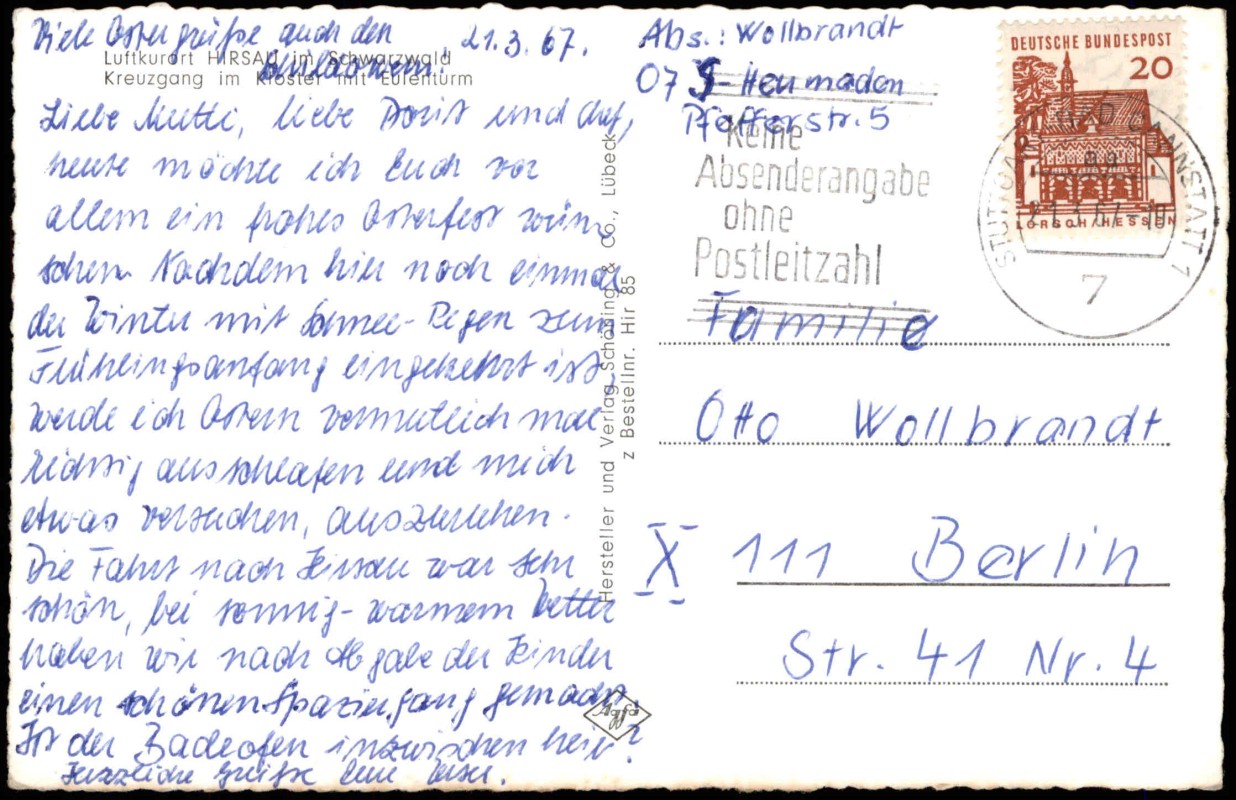 Viele Ostergrüße auch den
21.3.67.
Luftkurort HIRSAU im Schwarzwald
Kreuzgang im Kloster mit Eulenturm
Liebe Mutti, liebe Dorit und
heute möchte ich Euch vor
allem ein frohes Osterfest wün-
schen. Nachdem hier noch einmal
der Winter mit Schnee-Regen zum
Frühlingsanfang eingekehrt ist,
werde ich Ostern vermutlich mal
richtig ausschlafen und mich
etwas versuchen, auszuruhen.
Die Fahrt nach Hirsau war sehr
schön, bei sonnig-warmem Wetter
haben wir nach Abgabe der Kinder
einen schönen Spaziergang gemacht.
Ist der Badeofen inzwischen heil?
Herzliche Grüße Eure
Hersteller und Verlag Schöning & Co., Lübeck
z Bestellnr. Hir 85
Agfa
Abs.: Wollbrandt
07 Heumaden
Pfefferstr. 5
Keine
Absenderangabe
ohne
Postleitzahl
DEUTSCHE BUNDESPOST
20
LORSCH/HESSEN
STUTTGART-BAD CANNSTATT 1
21.3.67-18
7
Familie
Otto Wollbrandt
X 111 Berlin
Str. 41 Nr. 4